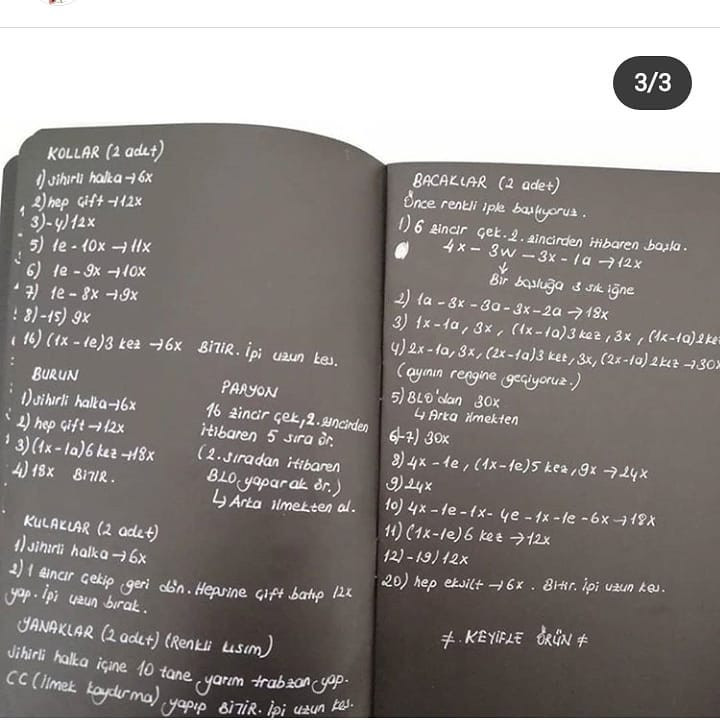 3/3
KOLLAR (2 adet)
1) sihirli halka → 6x
2) hep çift → 12x
3)-4) 12x
5) 1e - 10x → 11x
6) 1e - 9x → 10x
7) 1e - 8x → 9x
8)-15) 9x
16) (1x - 1e) 3 kez → 6x BİTİR. İpi uzun kes.
BURUN
1) sihirli halka → 6x
2) hep çift → 12x
3) (1x - 1a) 6 kez → 18x
4) 18x BİTİR.
PAPYON
16 zincir çek, 2. zincirden
itibaren 5 sıra ör.
(2. sıradan itibaren
BLO yaparak ör.)
↳ Arka ilmekten al.
KULAKLAR (2 adet)
1) sihirli halka → 6x
2) 1 zincir çekip geri dön. Hepsine çift batıp 12x
yap. İpi uzun bırak.
YANAKLAR (2 adet) (Renkli kısım)
Sihirli halka içine 10 tane yarım trabzan yap.
CC (ilmek kaydırma) yapıp BİTİR. İpi uzun kes.
BACAKLAR (2 adet)
Önce renkli iple başlıyoruz.
1) 6 zincir çek. 2. zincirden itibaren başla.
4x - 3W - 3x - 1a → 12x
↓
Bir boşluğa 3 sık iğne
2) 1a - 3x - 3a - 3x - 2a → 18x
3) 1x - 1a, 3x, (1x - 1a) 3 kez, 3x, (1x - 1a) 2 ke
4) 2x - 1a, 3x, (2x - 1a) 3 kez, 3x, (2x - 1a) 2 kez → 30x
(ayının rengine geçiyoruz.)
5) BLO'dan 30x
↳ Arka ilmekten
6)-7) 30x
8) 4x - 1e, (1x - 1e) 5 kez, 9x → 24x
9) 24x
10) 4x - 1e - 1x - 4e - 1x - 1e - 6x → 18x
11) (1x - 1e) 6 kez → 12x
12) - 19) 12x
20) hep eksilt → 6x. Bitir. İpi uzun kes.
≠. KEYİFLE ÖRÜN ≠